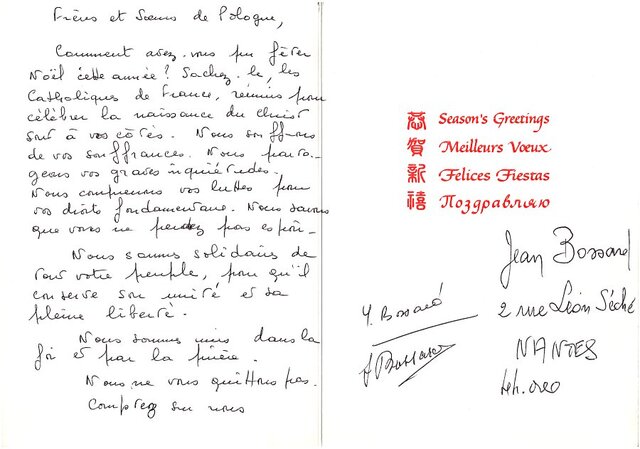 Frères et Sœurs de Pologne,
Comment avez-vous pu fêter
Noël cette année? Sachez-le, les
Catholiques de France, réunis pour
célébrer la naissance du Christ
sont à vos côtés. Nous souffrons
de vos souffrances. Nous parta-
geons vos graves inquiétudes.
Nous comprenons vos luttes pour
vos droits fondamentaux. Nous savons
que vous ne perdez pas espoir.
Nous sommes solidaires de
tout votre peuple, pour qu'il
conserve son unité et sa
pleine liberté.
Nous sommes unis dans la
foi et par la prière.
Nous ne vous quittons pas.
Comptez sur nous
恭 Season's Greetings
賀 Meilleurs Vœux
新 Felices Fiestas
禧 Поздравляю
Jean Bossard
2 rue Léon Séché
NANTES
Y. Bossard
J Bossard